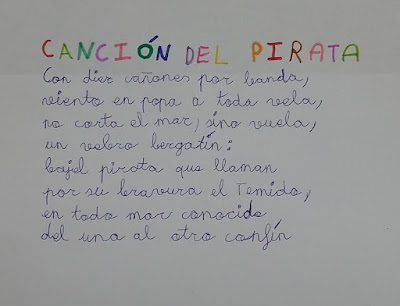 CANCIÓN DEL PIRATA
Con diez cañones por banda,
viento en popa a toda vela,
no corta el mar, sino vuela,
un velero bergatín:
bajel pirata que llaman
por su bravura el Temido,
en todo mar conocido
del una al otro confín